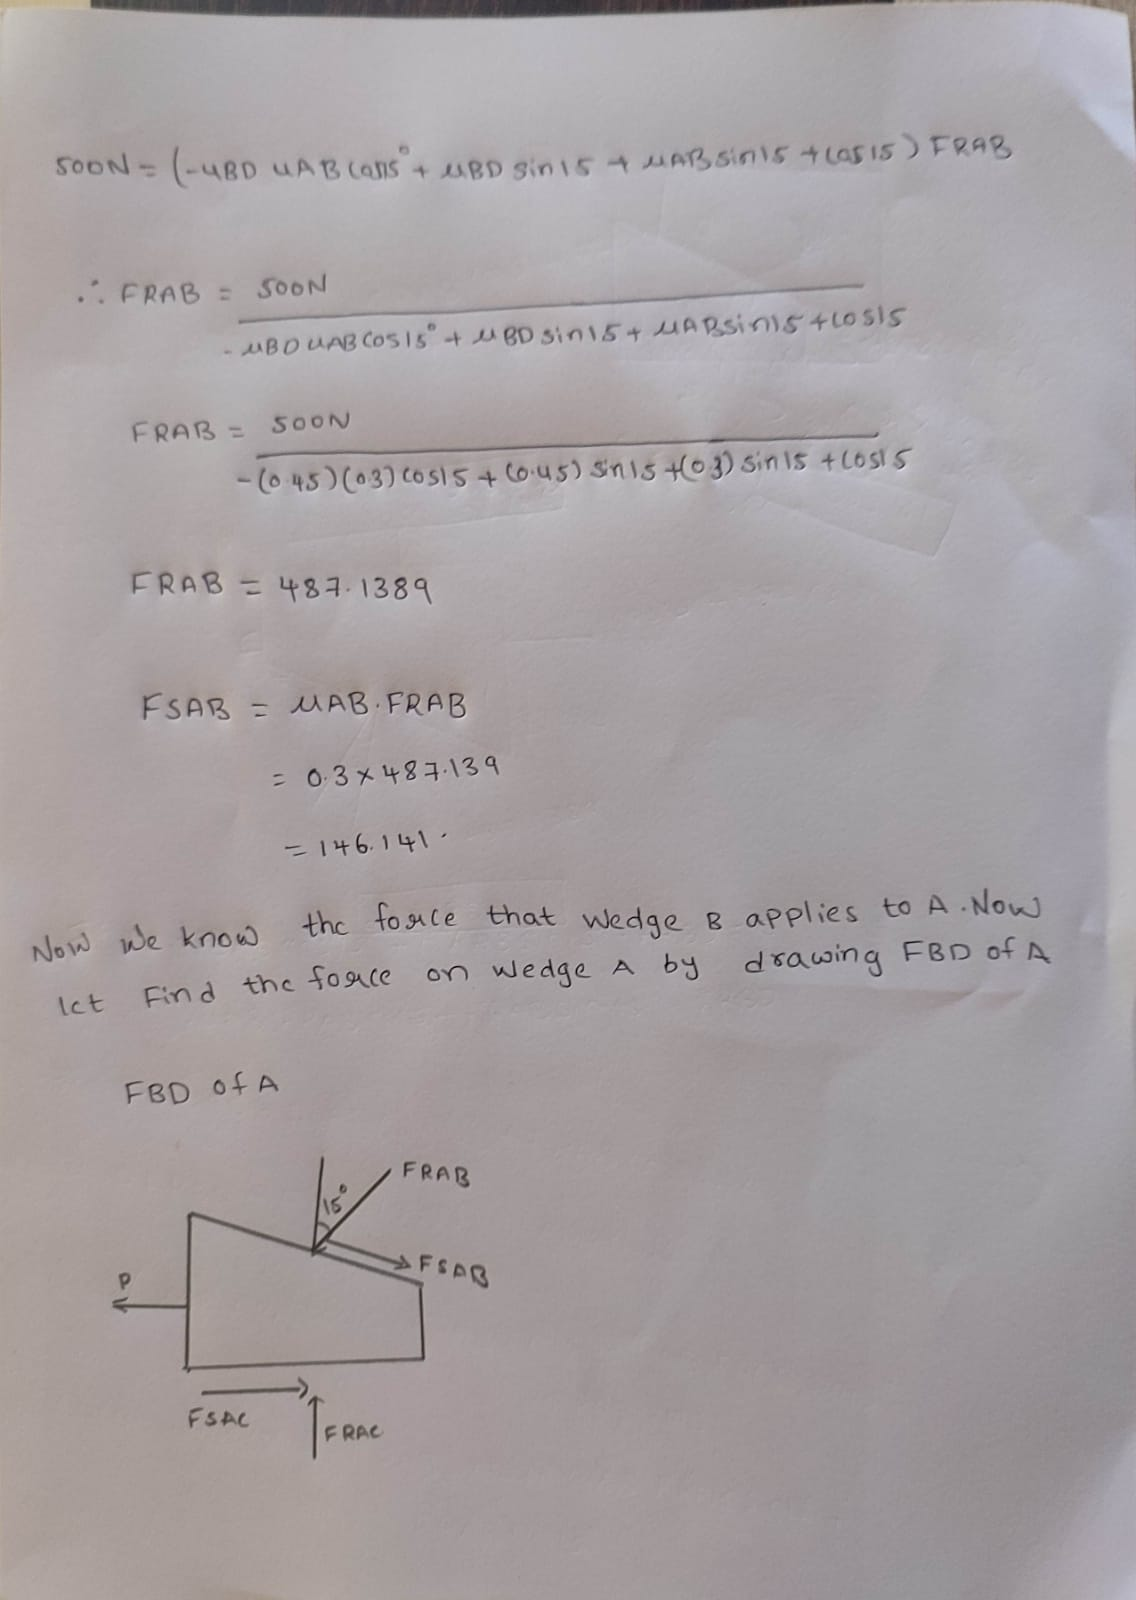 500N = (-μBD μAB cos15° + μBD sin15 + μAB sin15 + cos15) FRAB
∴ FRAB = 500N
-μBD μAB cos15° + μBD sin15 + μAB sin15 + cos15
FRAB = 500N
-(0.45)(0.3) cos15 + (0.45) sin15 + (0.3) sin15 + cos15
FRAB = 487.1389
FSAB = μAB.FRAB
= 0.3 x 487.139
= 146.141.
Now we know the force that wedge B applies to A. Now
let Find the force on wedge A by drawing FBD of A
FBD of A
FRAB
15°
FSAB
P
FSAC
FRAC